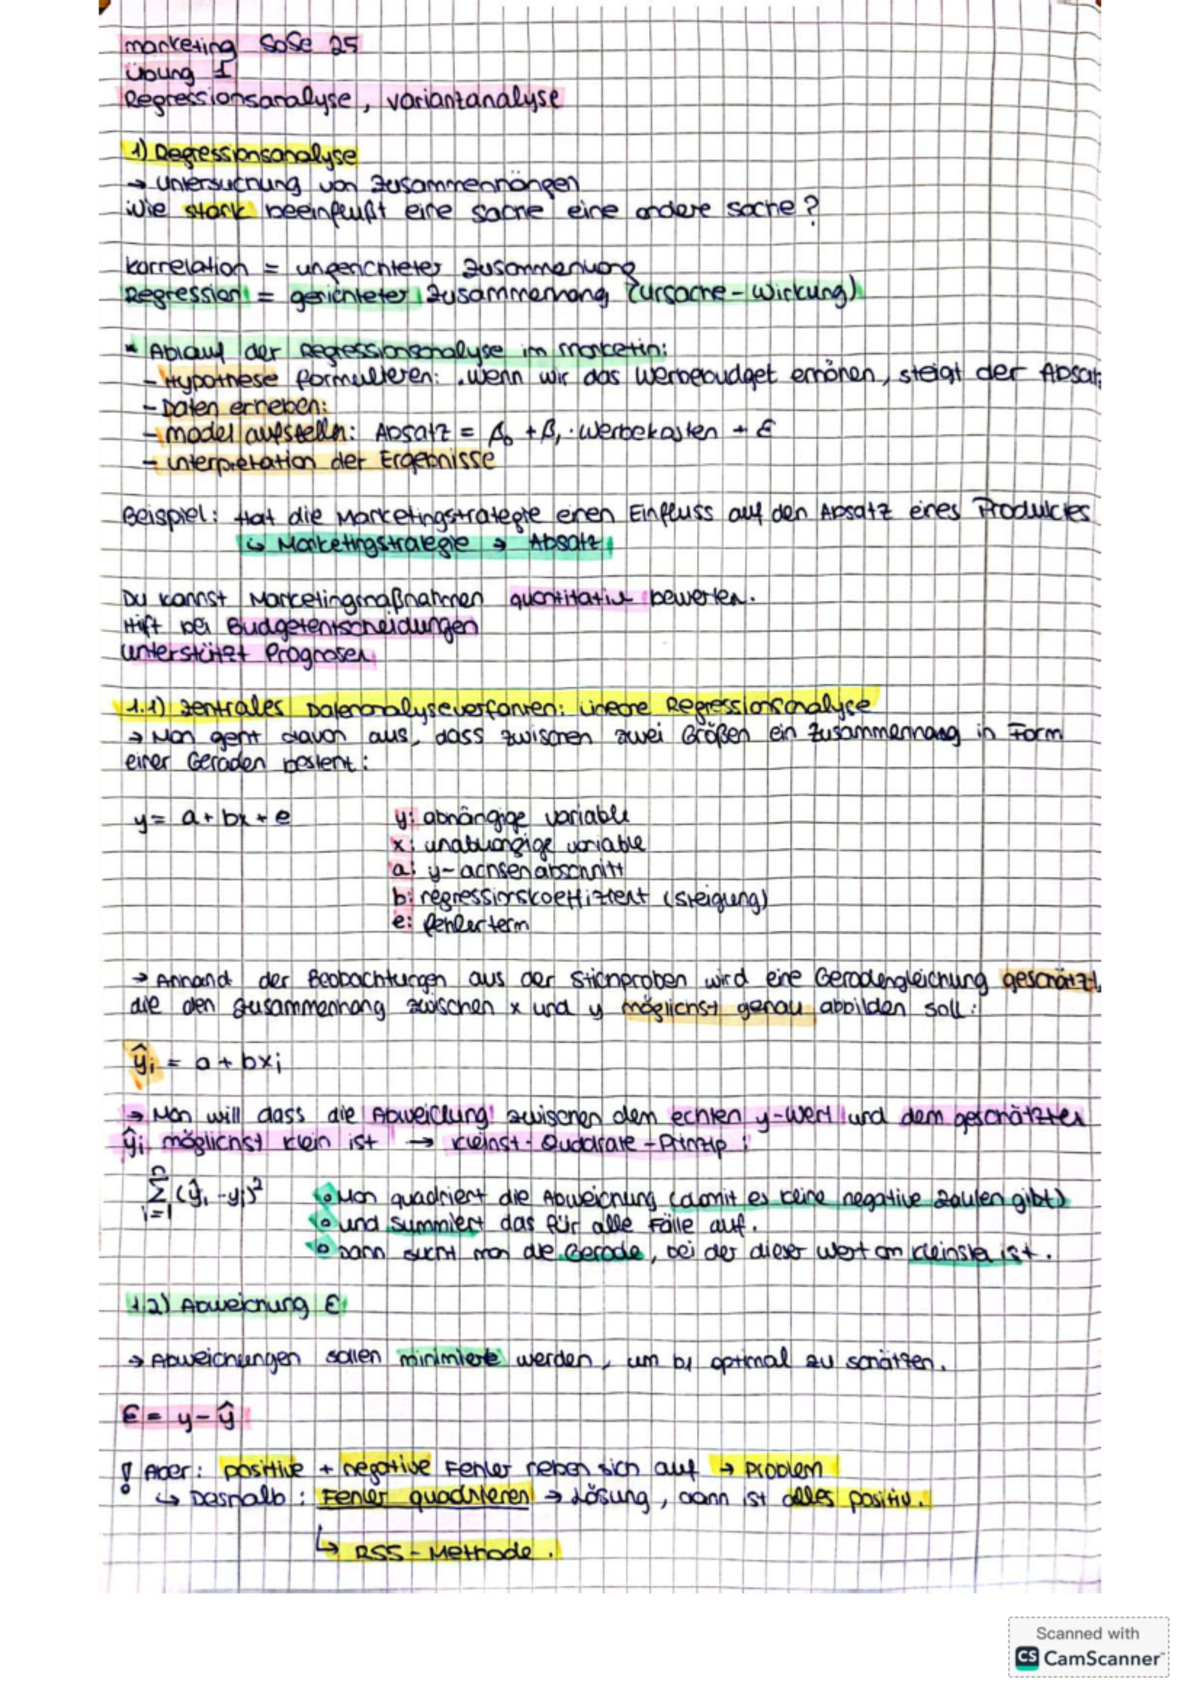 Marketing SoSe 25
Übung 1
Regressionsanalyse, Variantanalyse
1) Regressionsanalyse
→ Untersuchung von Zusammenhängen
Wie stark beeinflußt eine Sache eine andere Sache?
Korrelation = ungerichteter Zusammenhang
Regression = gerichteter Zusammenhang (Ursache-Wirkung)
* Ablauf der Regressionsanalyse im Marketin:
- Hypothese formulieren: „Wenn wir das Werbebudget erhöhen, steigt der Absatz
- Daten erheben:
- Model aufstelln: Absatz = β₀ + β₁ · Werbekosten + ε
- Interpretation der Ergebnisse
Beispiel: Hat die Marketingstrategie einen Einfluss auf den Absatz eines Produktes
↳ Marketingstrategie → Absatz
Du kannst Marketingmaßnahmen quantitativ bewerten.
Hift bei Budgetentscheidungen
unterstützt Prognosen
1.1) Zentrales Datenanalyseverfahren: Lineare Regressionsanalyse
→ Man geht davon aus, dass zwischen zwei Größen ein Zusammenhang in Form
einer Geraden besteht:
y = a + bx + e
y: abhängige Variable
x: unabhängige Variable
a: y-achsenabschnitt
b: regressionskoeffizient (Steigung)
e: fehlerterm
→ Annand der Beobachtungen aus der Stichproben wird eine Geradengleichung geschätzt,
die den Zusammenhang zwischen x und y möglichst genau abbilden soll:
ŷi = a + bxi
→ Man will dass die Abweichung zwischen dem echten y-Wert und dem geschätzten
ŷi möglichst klein ist → Kleinst-Quadrate-Prinzip:
n∑i=1 (ŷi - yi)²
o Man quadriert die Abweichung (damit es keine negative Zahlen gibt)
o und summiert das für alle Fälle auf.
o Dann sucht man die Gerade, bei der dieser Wert am kleinsten ist.
1.2) Abweichung ε
→ Abweichungen sollen minimiert werden, um b₁ optimal zu schätzen.
ε = y - ŷ
! Aber: positive + negative Fehler heben sich auf → Problem
↳ Deshalb: Fehler quadrieren → Lösung, dann ist alles positiv.
↳ RSS-Methode.
Scanned with
CS CamScanner